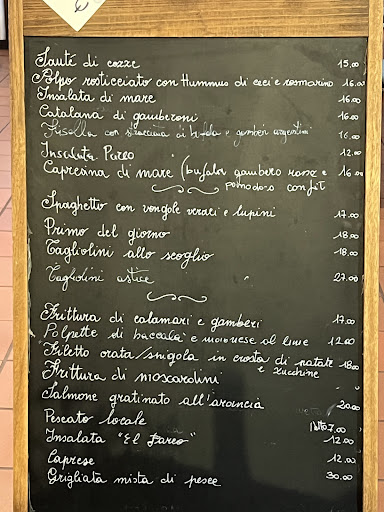 Sauté di cozze 15.00
Polpo rosticciato con Hummus di ceci e rosmarino 16.00
Insalata di mare 16.00
Catalana di gamberoni 16.00
Frisella con stracciatella di bufala e gamberi argentini 16.00
Insalata Pareo 12.00
Capresina di mare (bufala gambero rosso e 16.00
pomodoro confit
Spaghetto con vongole veraci e lupini 17.00
Primo del giorno 18.00
Tagliolini allo scoglio 18.00
Tagliolini astice 27.00
Frittura di calamari e gamberi 17.00
Polpette di baccalà e maionese al lime 12.00
Filetto orata/spigola in crosta di patate 18.00
e zucchine
Frittura di moscardini
Salmone gratinato all'arancia 20.00
Pescato locale
l'etto 7.00
Insalata "El Pareo" 12.00
Caprese 12.00
Grigliata mista di pesce 30.00